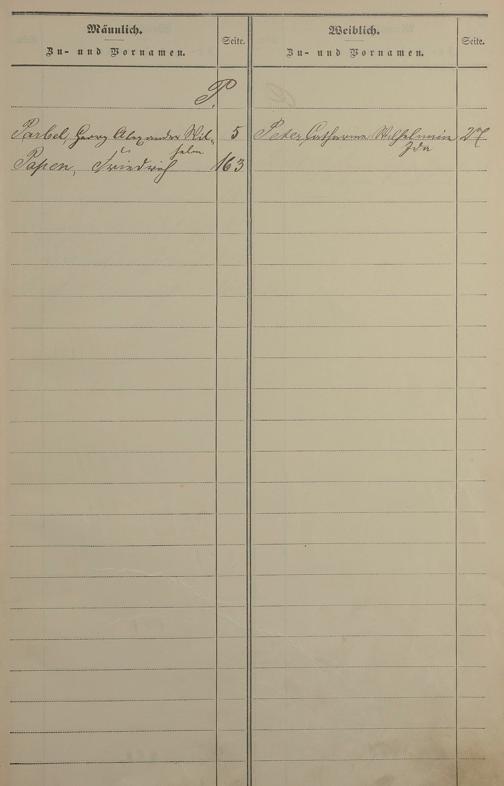 Männlich.
Zu- und Vornamen.
Seite.
Weiblich.
Zu- und Vornamen.
Seite.
P.
Parbel, Georg Alexander Wil-
helm
5
Papen, Friedrich
163
Peter, Catharine Wilhelmine
Ida